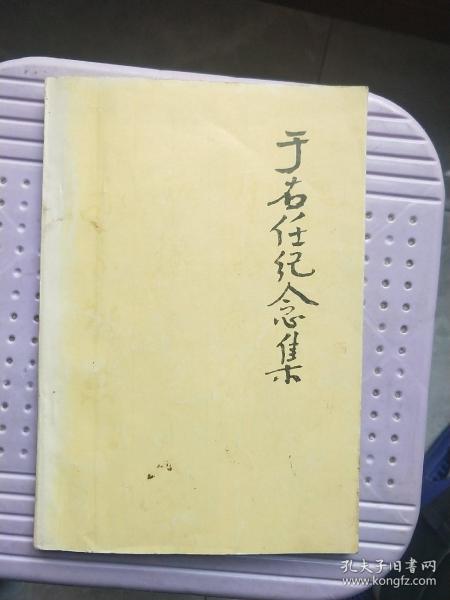 于右任纪念集
孔夫子旧书网
www.kongfz.com